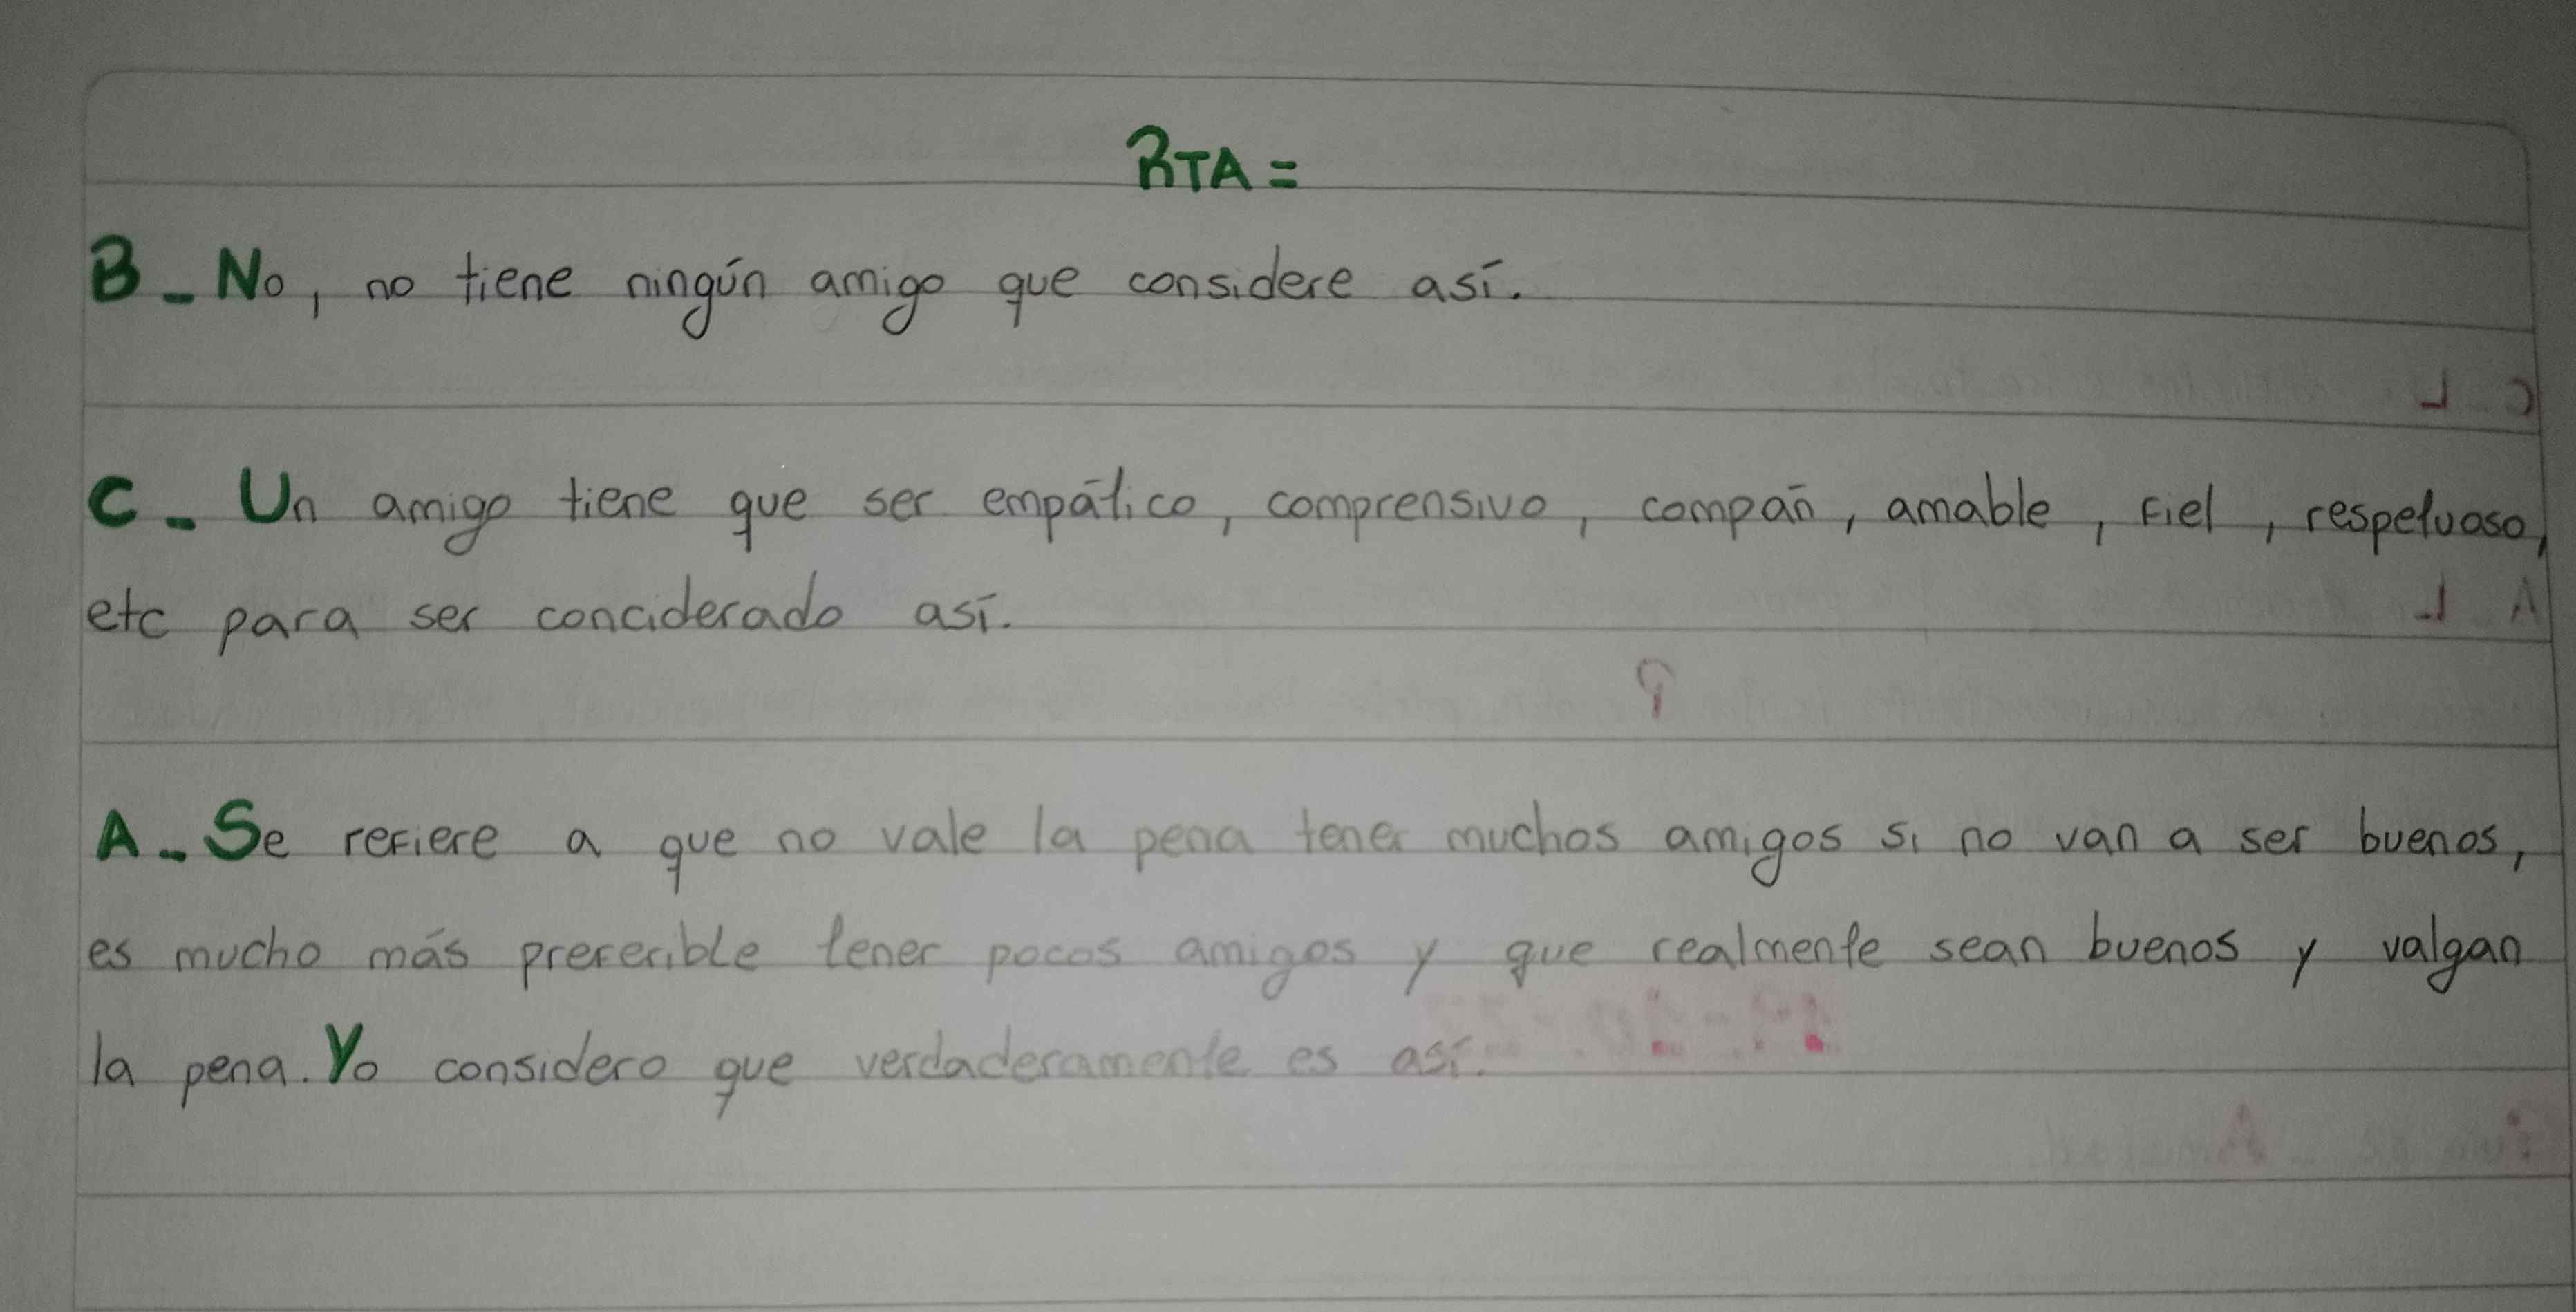 RTA =
B - No, no tiene ningún amigo que considere así.
C - Un amigo tiene que ser empático, comprensivo, compañ, amable, fiel, respetuoso,
etc para ser conciderado así.
A - Se refiere a que no vale la pena tener muchos amigos si no van a ser buenos,
es mucho más preferible tener pocos amigos y que realmente sean buenos y valgan
la pena. Yo considero que verdaderamente es así.